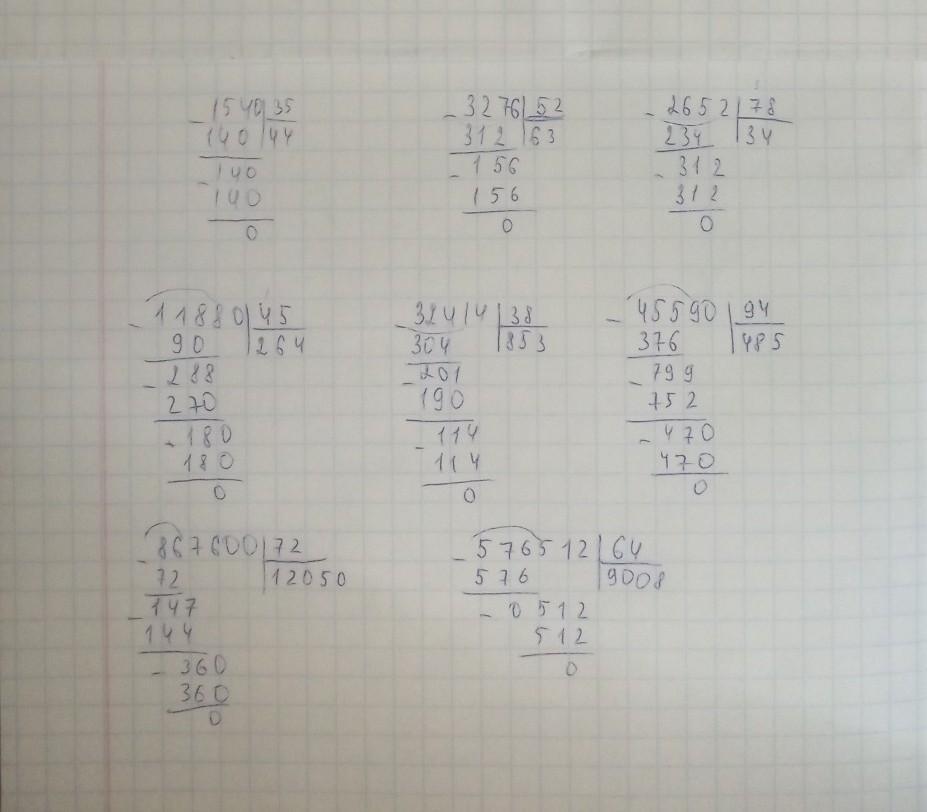 1540 35
- 140 44
- 140
140
0
- 3276 52
312 63
- 156
156
0
- 2652 78
234 34
- 312
312
0
- 11880 45
90 264
- 288
270
- 180
180
0
- 32414 38
304 853
- 201
190
- 114
114
0
- 45590 94
376 485
- 799
752
- 470
470
0
- 867600 72
72 12050
- 147
144
- 360
360
0
- 576512 64
576 9008
- 0512
512
0